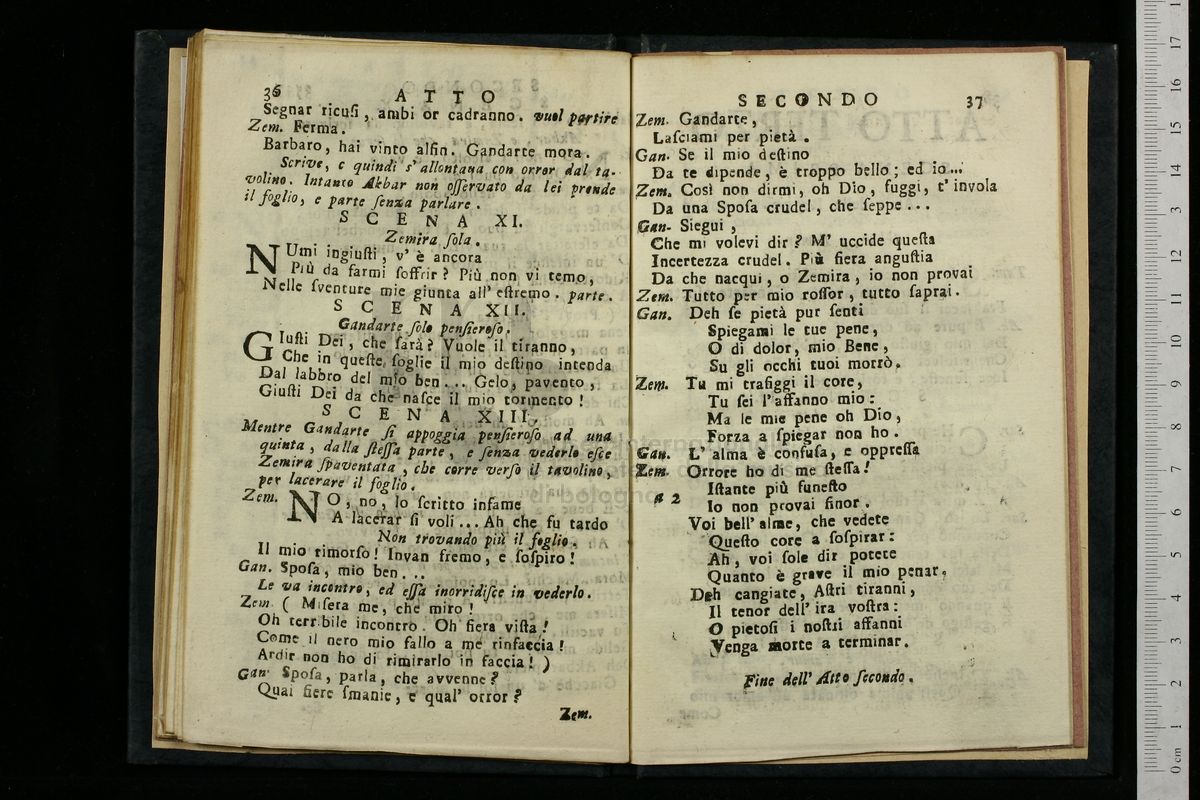 36 ATTO
Segnar ricuſi, ambi or cadranno. vuol partire
Zem. Ferma.
Barbaro, hai vinto alfin. Gandarte mora.
Scrive, e quindi s' allontana con orror dal ta-
volino. Intanto Akbar non oſſervato da lei prende
il foglio, e parte ſenza parlare.
SCENA XI.
Zemira ſola.
NUmi ingiuſti, v' è ancora
Più da farmi ſoffrir? Più non vi temo,
Nelle ſventure mie giunta all' eſtremo. parte.
SCENA XII.
Gandarte ſolo penſieroſo.
GIuſti Dei, che ſarà? Vuole il tiranno,
Che in queſte ſoglie il mio deſtino intenda
Dal labbro del mio ben... Gelo, pavento,
Giuſti Dei da che naſce il mio tormento!
SCENA XIII.
Mentre Gandarte ſi appoggia penſieroſo ad una
quinta, dalla ſteſſa parte, e ſenza vederlo eſce
Zemira ſpaventata, che corre verſo il tavolino,
per lacerare il foglio.
Zem. NO, no, lo ſcritto infame
A lacerar ſi voli... Ah che fu tardo
Non trovando più il foglio.
Il mio rimorſo! Invan fremo, e ſoſpiro!
Gan. Spoſa, mio ben...
Le va incontro, ed eſſa inorridiſce in vederlo.
Zem. (Miſera me, che miro!
Oh terribile incontro. Oh fiera viſta!
Come il nero mio fallo a me rinfaccia!
Ardir non ho di rimirarlo in faccia!)
Gan. Spoſa, parla, che avvenne?
Quai fiere ſmanie, e qual' orror?
Zem.
SECONDO 37
Zem. Gandarte,
Laſciami per pietà.
Gan. Se il mio deſtino
Da te dipende, è troppo bello; ed io...
Zem. Così non dirmi, oh Dio, fuggi, t' invola
Da una Spoſa crudel, che ſeppe...
Gan. Siegui,
Che mi volevi dir? M' uccide queſta
Incertezza crudel. Più fiera anguſtia
Da che nacqui, o Zemira, io non provai
Zem. Tutto per mio roſſor, tutto ſaprai.
Gan. Deh ſe pietà pur ſenti
Spiegami le tue pene,
O di dolor, mio Bene,
Su gli occhi tuoi morrò.
Zem. Tu mi trafiggi il core,
Tu ſei l'affanno mio:
Ma le mie pene oh Dio,
Forza a ſpiegar non ho.
Gan. L' alma è confuſa, e oppreſſa
Zem. Orrore ho di me ſteſſa!
a 2 Iſtante più funeſto
Io non provai finor.
Voi bell' alme, che vedete
Queſto core a ſoſpirar:
Ah, voi ſole dir potete
Quanto è grave il mio penar,
Deh cangiate, Aſtri tiranni,
Il tenor dell' ira voſtra:
O pietoſi i noſtri affanni
Venga morte a terminar.
Fine dell' Atto ſecondo.